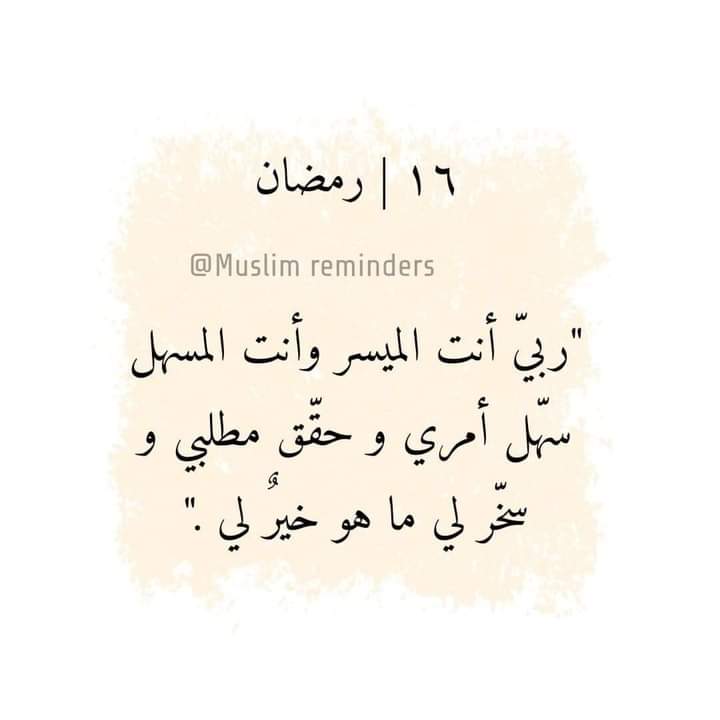 ١٦ | رمضان
@Muslim reminders
"ربيّ أنت الميسر وأنت المسهل
سهّل أمري و حقّق مطلبي و
سخّر لي ما هو خيرٌ لي ."